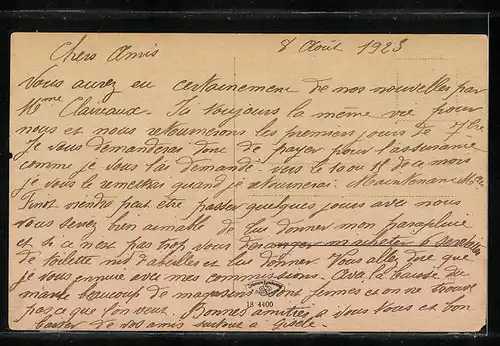 Chers Amis 8 Août 1923
Vous aurez eu certainement de nos nouvelles par
Mme Claireaux. Ici toujours la même vie pour
nous et nous retournerons les premiers jours de 7bre
Je vous demanderai donc de payer pour l'assurance
comme je vous l'ai demandé vers le 10 ou 18 de ce mois
je vous le remettrai quand je retournerai. Maintenant Mme
viendra peut être passer quelques jours avec nous
vous seriez bien aimable de lui donner mon parapluie
et si ce n'est pas trop vous déranger m'acheter 6 serviettes
de toilette nid d'abeilles et lui donner. Vous allez dire que
je vous ennuie avec mes commissions. Avec la hausse du
mark beaucoup de magasins sont fermés et on ne trouve
pas ce que l'on veut. Bonnes amitiés à vous tous et bon
baiser de vos amis surtout à Gisèle.
18 4400